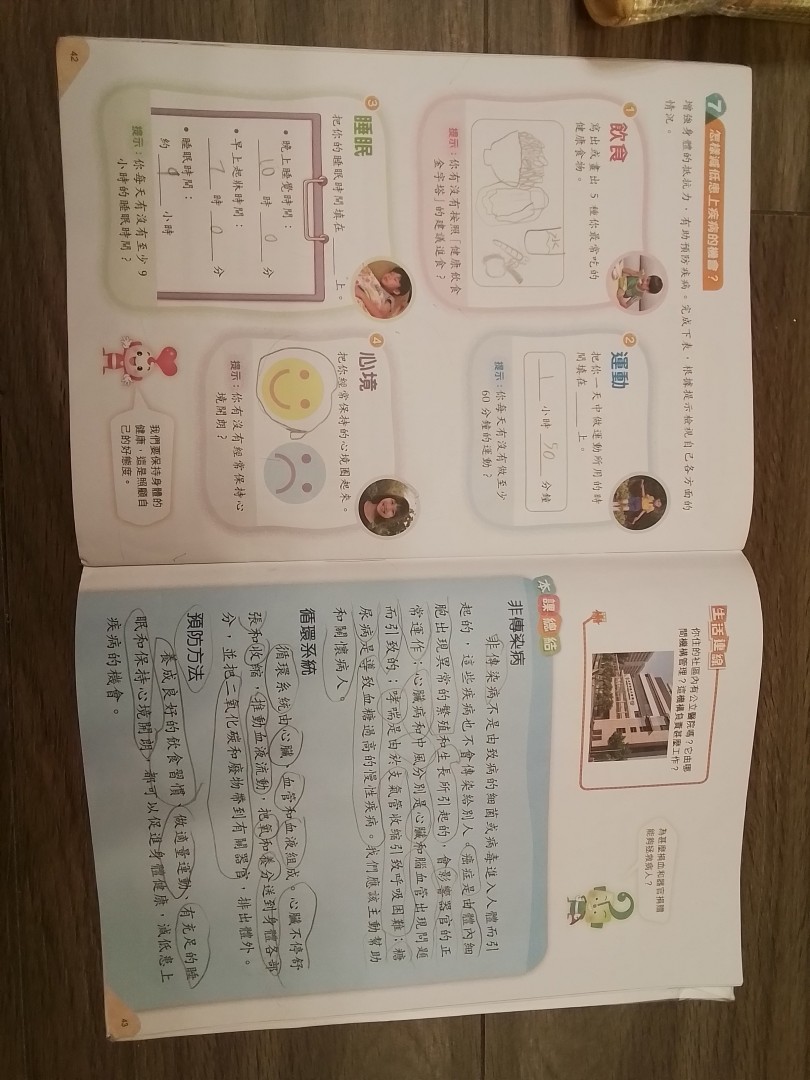 7 怎樣減低患上疾病的機會？
增強身體的抵抗力，有助預防疾病。完成下表，根據提示檢視自己各方面的
情況。
1 飲食
寫出或畫出 5 種你最常吃的
健康食物。
提示：你有沒有按照「健康飲食
金字塔」的建議進食？
2 運動
把你一天中做運動所用的時
間填在 ______ 上。
1 小時 分鐘
提示：你每天有沒有做至少
60 分鐘的運動？
3 睡眠
把你的睡眠時間填在 ______ 上。
• 晚上睡覺時間：
10 時 0 分
• 早上起牀時間：
7 時 0 分
• 睡眠時間：
約 9 小時
提示：你每天有沒有至少 9
小時的睡眠時間？
4 心境
把你經常保持的心境圈起來。
提示：你有沒有經常保持心
境開朗？
我們要保持身體的
健康，這是照顧自
己的好態度。
42
生活連線
你住的社區內有公立醫院嗎？它由哪
間機構管理？這機構負責甚麼工作？
為甚麼捐血和器官捐贈
能夠拯救病人？
本課總結
非傳染病
非傳染病不是由致病的細菌或病毒進入人體而引
起的，這些疾病也不會傳染給別人。癌症是由體內細
胞出現異常的繁殖和生長所引起的，會影響器官的正
常運作；心臟病和中風分別是心臟和腦血管出現問題
而引致的；哮喘是由於支氣管收縮引致呼吸困難；糖
尿病是導致血糖過高的慢性疾病。我們應該主動幫助
和關懷病人。
循環系統
循環系統由心臟、血管和血液組成。心臟不停舒
張和收縮，推動血液流動，把氧和養分送到身體各部
分，並把二氧化碳和廢物帶到有關器官，排出體外。
預防方法
養成良好的飲食習慣、做適量運動、有充足的睡
眠和保持心境開朗，都可以促進身體健康，減低患上
疾病的機會。
43